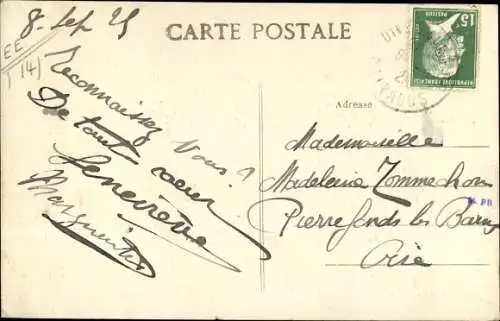 8-sep 25
CARTE POSTALE
EE
(14)
15c
POSTES
PASTEUR
REPUBLIQUE FRANÇAISE
CALVADOS
Adresse
Reconnaissez Vous?
De tout coeur
Geneviève
Marguerite
Mademoiselle
Madeleine
Pierrefonds les Bains
Oise